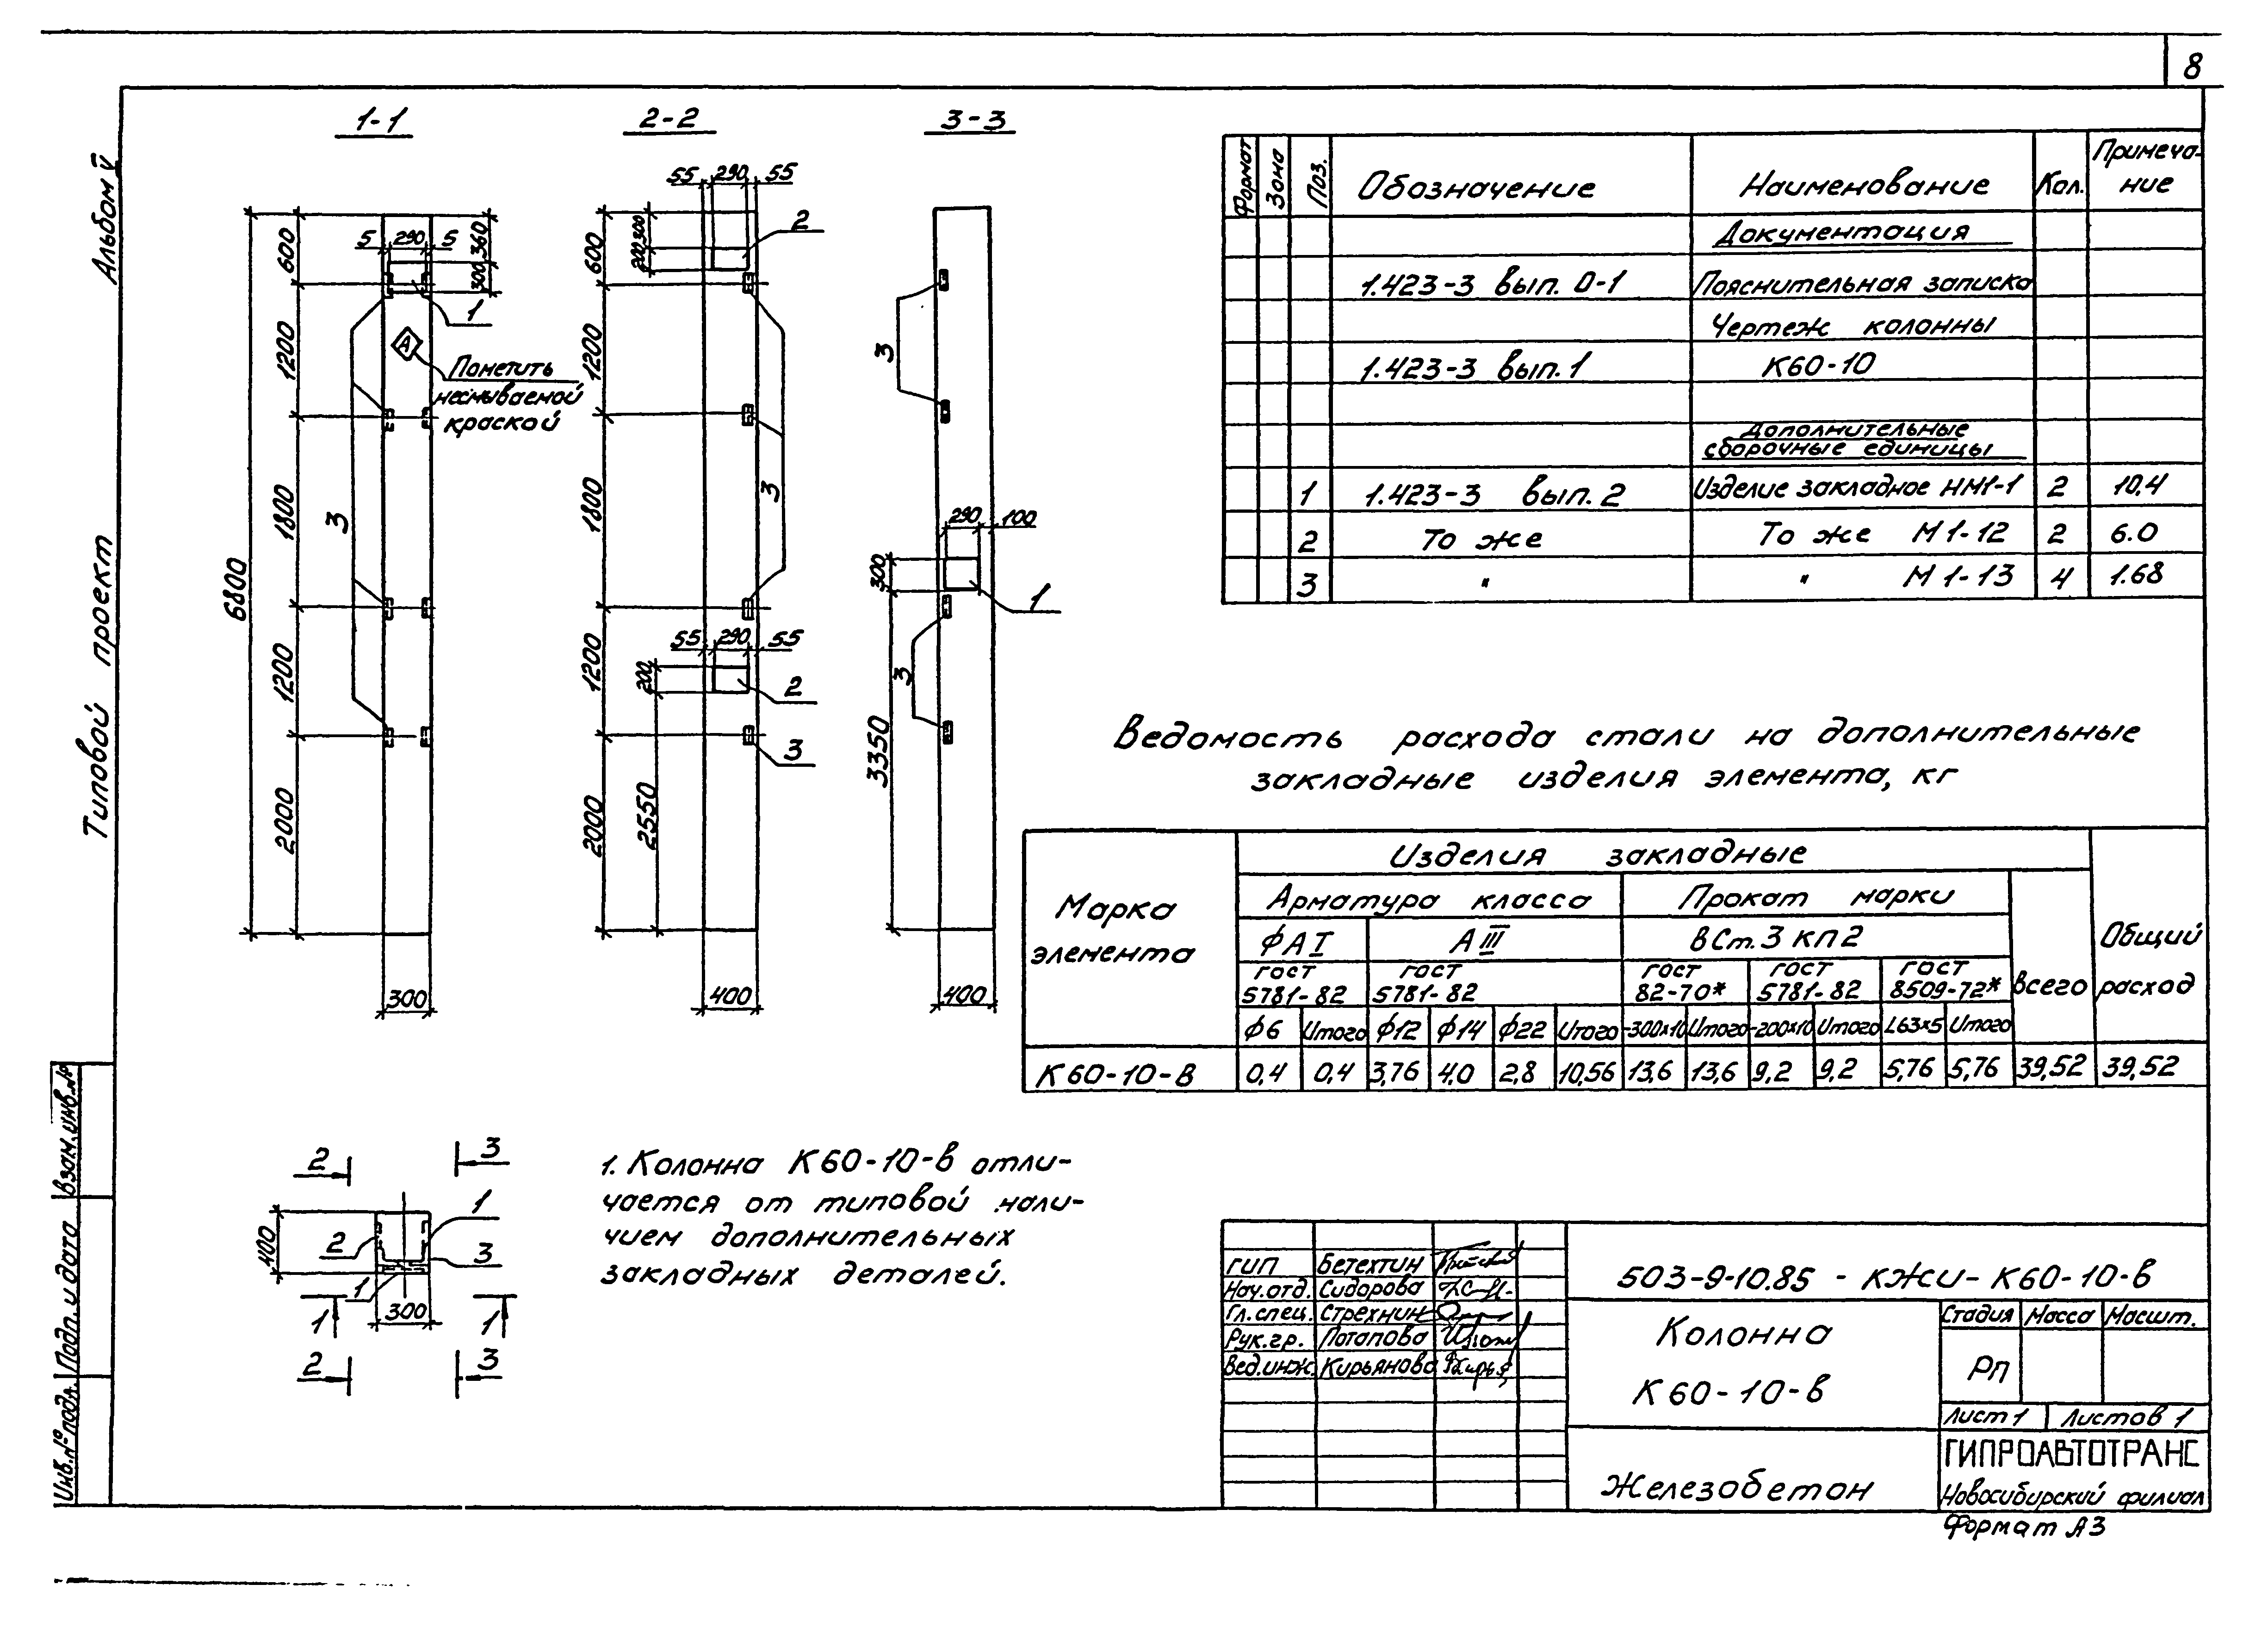 8
Альбом V
Типовой проект
1-1
6800
600
1200
1800
1200
2000
5 290 5
360
300
1
А
Пометить
несмываемой
краской
3
300
2-2
55 290 55
300
200
2
600
1200
1800
1200
2000
3
55 290 55
200
2
3
2550
400
3-3
3
290 100
300
1
3
3350
400
Формат Зона Поз. Обозначение Наименование Кол. Примеча-
ние
Документация
1.423-3 вып. 0-1 Пояснительная записка
Чертеж колонны
1.423-3 вып. 1 К60-10
Дополнительные
сборочные единицы
1 1.423-3 вып. 2 Изделие закладное НМ1-1 2 10,4
2 То же То же М1-12 2 6.0
3 " " М1-13 4 1.68
Ведомость расхода стали на дополнительные
закладные изделия элемента, кг
Марка
элемента
Изделия закладные
Арматура класса Прокат марки
ФАI АIII ВСт.3 КП2
ГОСТ
5781-82
ГОСТ
5781-82
ГОСТ
82-70*
ГОСТ
5781-82
ГОСТ
8509-72*
Всего
Общий
расход
ф6 Итого ф12 ф14 ф22 Итого -300х10 Итого -200х10 Итого L63х5 Итого
К60-10-В 0,4 0,4 3,76 4,0 2,8 10,56 13,6 13,6 9,2 9,2 5,76 5,76 39,52 39,52
2 3
400
1
2
3
1
300
1 1
2 3
1. Колонна К60-10-в отли-
чается от типовой нали-
чием дополнительных
закладных деталей.
Взам.инв.№
Подп. и дата
Инв.№ подл.
ГИП Бетехтин
Нач.отд. Сидорова
Гл.спец. Стрехнин
Рук.гр. Потапова
Вед.инж. Кирьянова
503-9-10.85 - КЖИ- К60-10-в
Колонна
К60-10-в
Стадия Масса Масшт.
РП
Лист 1 Листов 1
Железобетон
ГИПРОАВТОТРАНС
Новосибирский филиал
Формат А3